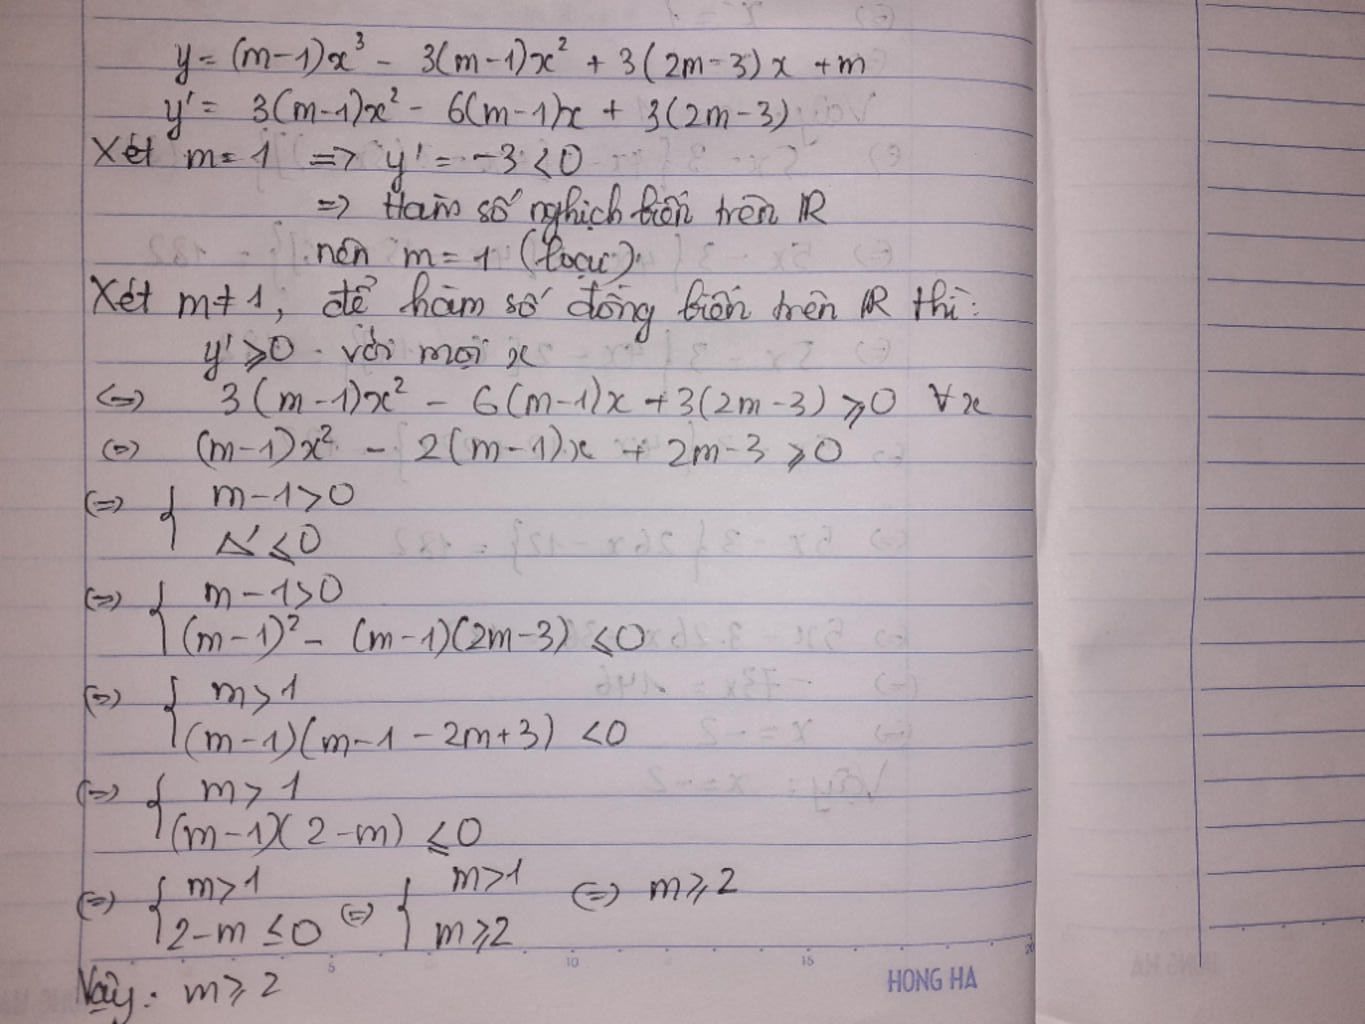 y = (m-1)x³ - 3(m-1)x² + 3(2m-3)x + m
y' = 3(m-1)x² - 6(m-1)x + 3(2m-3)
Xét m = 1 => y' = -3 < 0
=> Hàm số nghịch biến trên ℝ
nên m = 1 (loại).
Xét m ≠ 1, để hàm số đồng biến trên ℝ thì:
y' ⩾ 0 với mọi x
<=> 3(m-1)x² - 6(m-1)x + 3(2m-3) ⩾ 0 ∀x
<=> (m-1)x² - 2(m-1)x + 2m-3 ⩾ 0
<=> { m-1 > 0
Δ' ⩽ 0
<=> { m-1 > 0
(m-1)² - (m-1)(2m-3) ⩽ 0
<=> { m > 1
(m-1)(m-1-2m+3) < 0
<=> { m > 1
(m-1)(2-m) ⩽ 0
<=> { m > 1 <=> { m > 1 <=> m ⩾ 2
2-m ≤ 0 m ⩾ 2
Vậy: m ⩾ 2
5 10 15 20
HONG HA